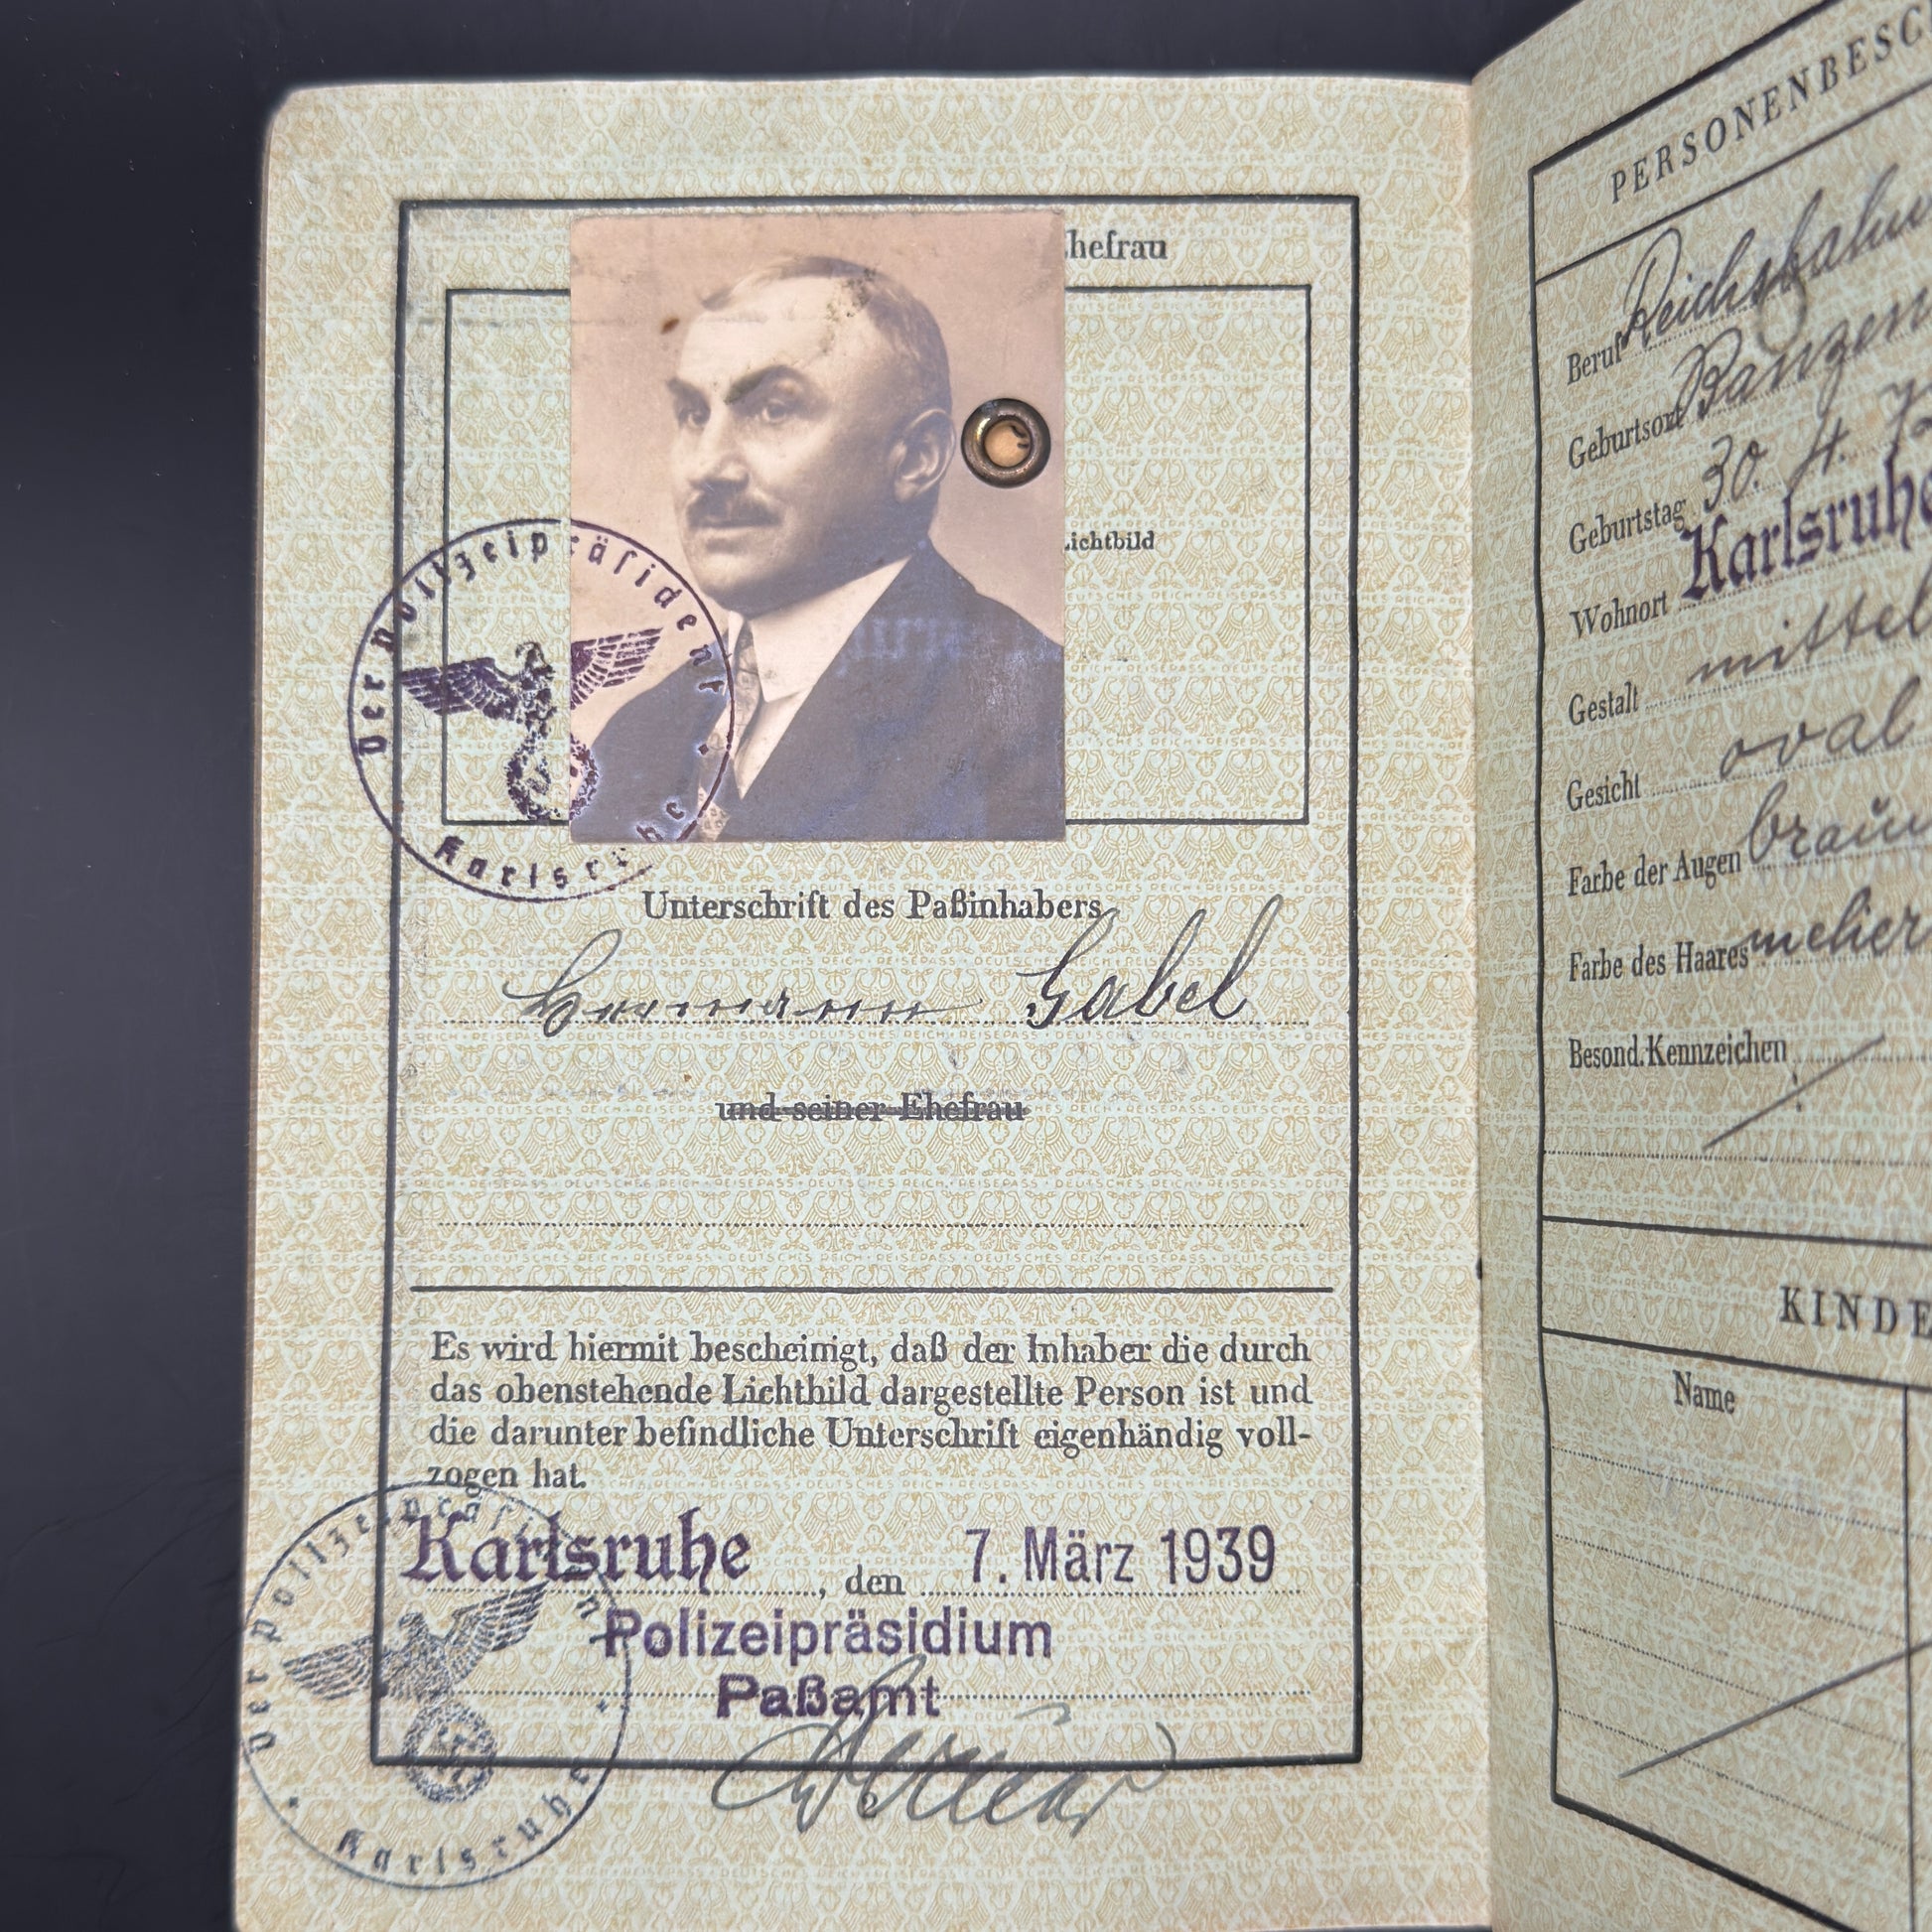 Ehefrau
Lichtbild
Der Polizeipräsident
Karlsruhe
Unterschrift des Paßinhabers
Hermann Gabel
und seiner Ehefrau
Es wird hiermit bescheinigt, daß der Inhaber die durch
das obenstehende Lichtbild dargestellte Person ist und
die darunter befindliche Unterschrift eigenhändig voll-
zogen hat.
Karlsruhe, den 7. März 1939
Polizeipräsidium
Paßamt
Der Polizeipräsident
Karlsruhe
PERSONENBESCH
Beruf Reichsbahn
Geburtsort
Geburtstag 30. 4.
Wohnort Karlsruhe
Gestalt mittel
Gesicht oval
Farbe der Augen braun
Farbe des Haares melier
Besond. Kennzeichen
KINDE
Name